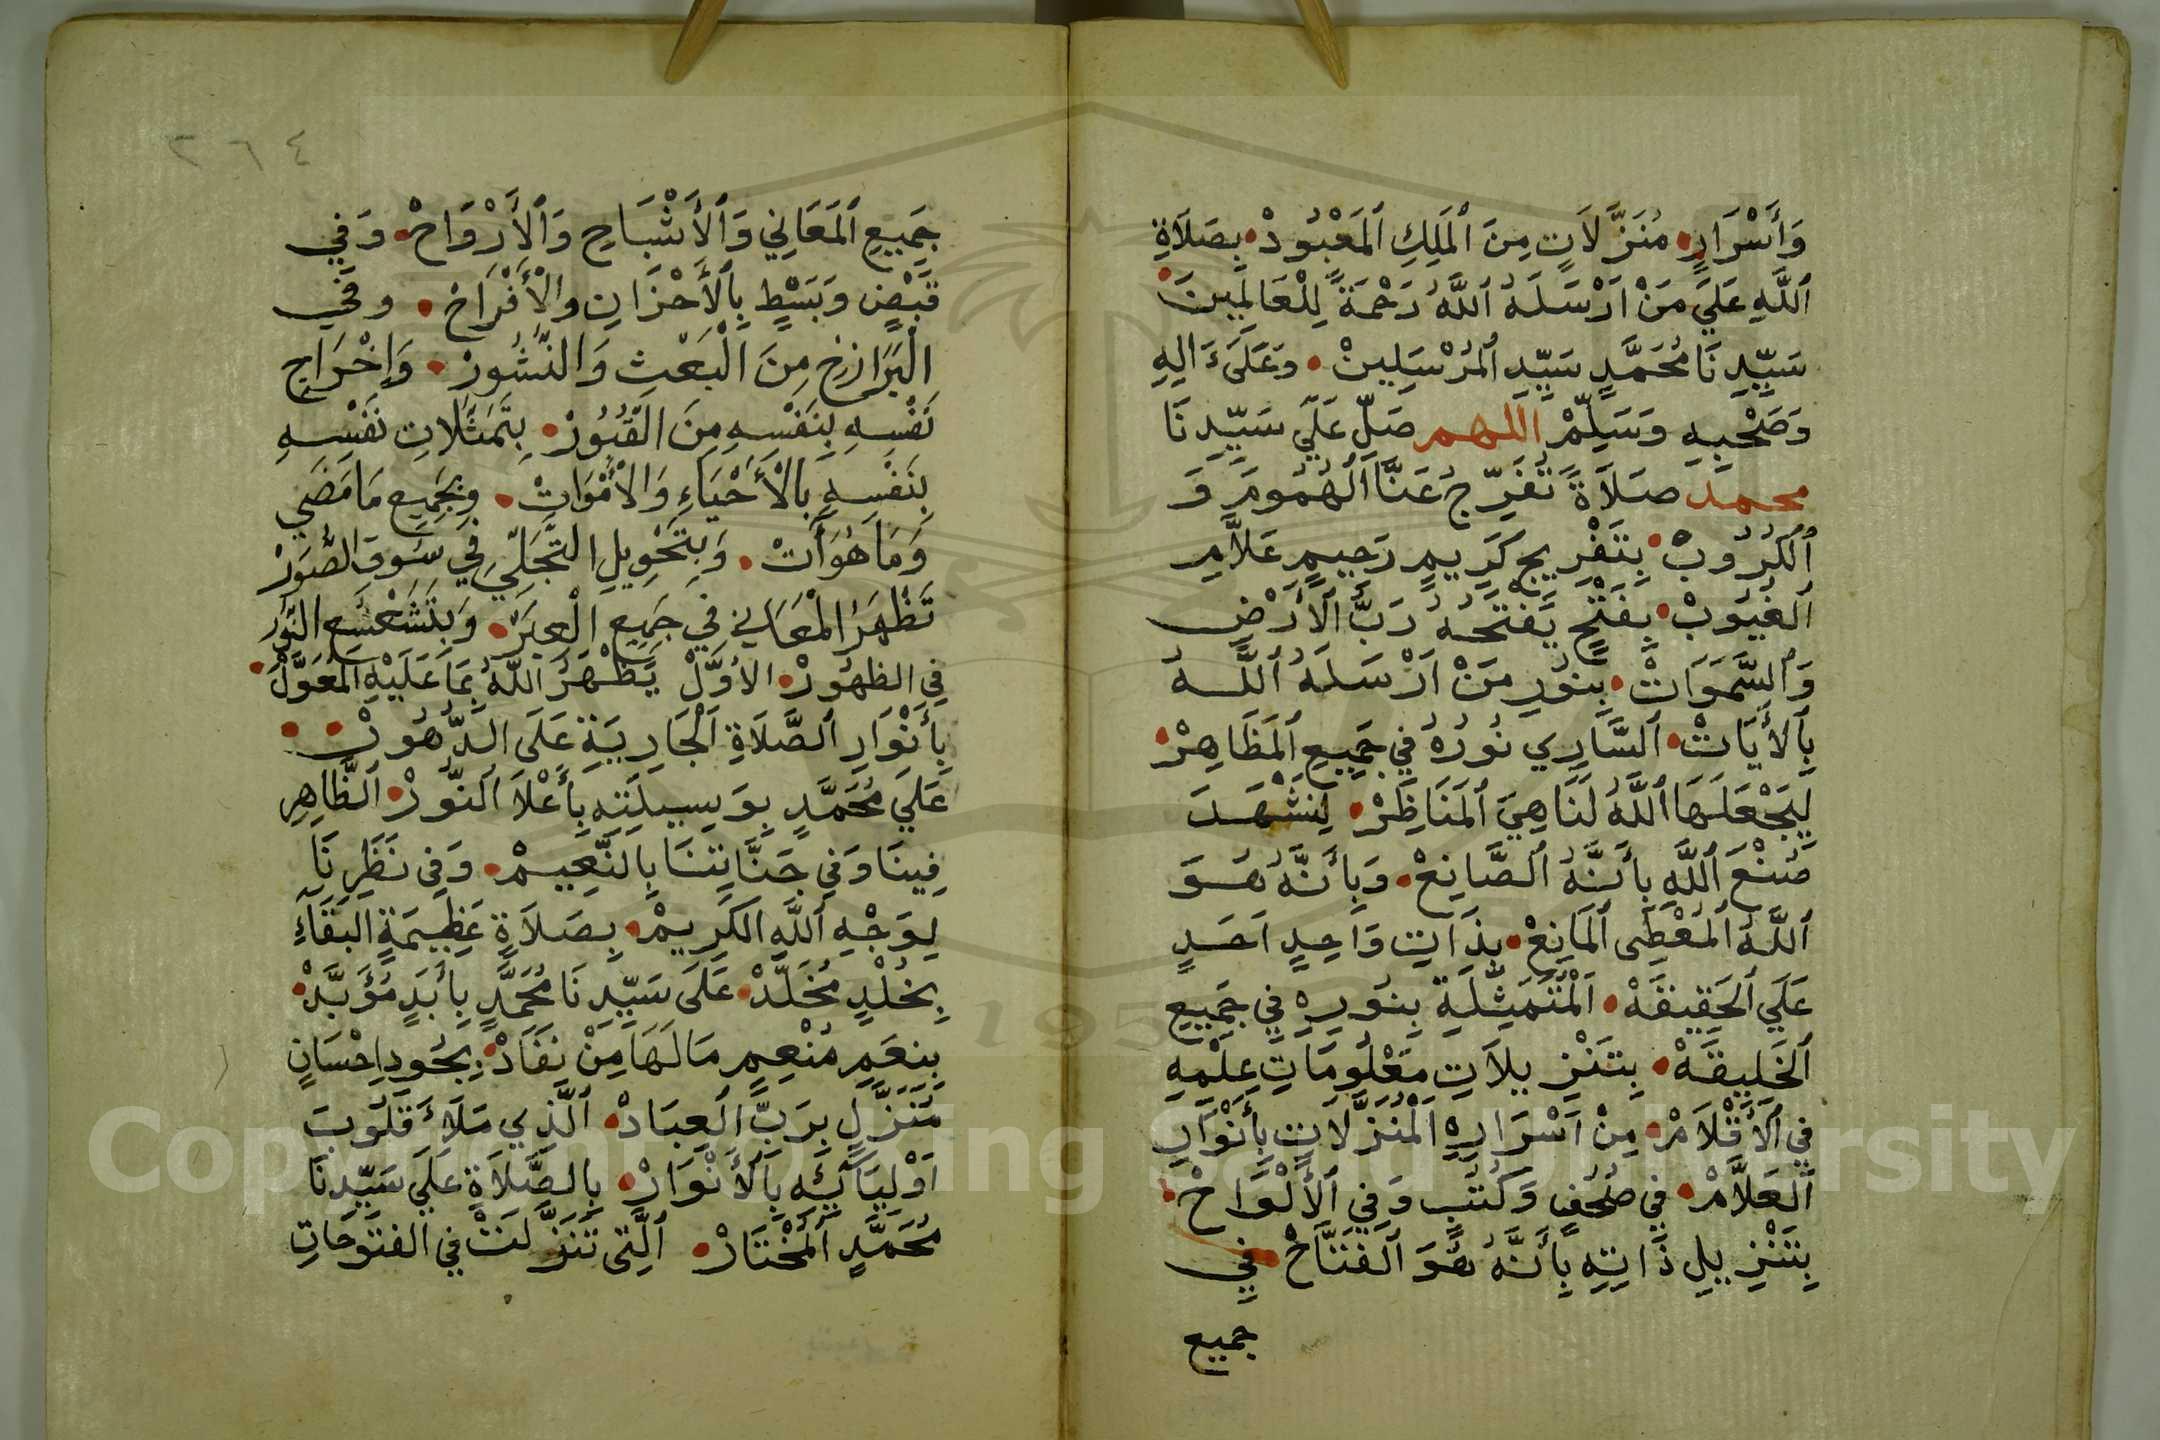 وَأَسْرَارٍ مُنَزَّلَاتٍ مِنَ ٱلْمَلِكِ ٱلْمَعْبُودْ بِصَلَاةِ
ٱللَّهِ عَلَيَ مَنْ اَرْسَلَهُ ٱللَّهُ رَحْمَةً لِلْعَالَمِينَ
سَيِّدِنَا مُحَمَّدٍ سَيِّدِ ٱلْمُرْسَلِينْ وَعَلَىَ ءَالِهِ
وَصَحْبِهِ وَسَلِّمْ اللهم صَلِّ عَلَي سَيِّدِنَا
محمد صَلَاةً تُفَرِّجُ عَنَّا ٱلْهُمُومَ وَ
ٱلْكُرُوبْ بِتَفْرِيجِ كَرِيمٍ رَحِيمٍ عَلَّامِ
ٱلْغُيُوبْ بِفَتْحٍ يَفْتَحُهُ رَبُّ ٱلْأَرْضِ
وَٱلسَّمَوَاتْ بِنُورِ مَنْ اَرْسَلَهُ ٱللَّهُ
بِٱلْأَيَاتْ ٱلسَّارِي نُورُهُ فِي جَمِيعِ ٱلْمَظَاهِرْ
لِيَجْعَلَهَا ٱللَّهُ لَنَا هِيَ ٱلْمَنَاظِرْ لِنَشْهَدَ
صُنْعَ ٱللَّهِ بِأَنَّهُ ٱلصَّانِعْ وَبِأَنَّهُ هُوَ
ٱللَّهُ ٱلْمُعْطِى ٱلْمَانِعْ بِذَاتِ وَاحِدٍ اَحَدٍ
عَلَي ٱلْحَقِيقَهْ ٱلْمُتَمَثِّلَةِ بِنُورِهِ فِي جَمِيعِ
ٱلْخَلِيقَهْ بِتَنْزِيلَاتِ مَعْلُومَاتِ عِلْمِهِ
فِي ٱلْأَقْلَامْ مِنْ اَسْرَارِهِ ٱلْمُنَزَّلَاتِ بِأَنْوَارِ
ٱلْعَلَّامْ فِي صُحُفٍ وَكُتُبٍ وَفِي ٱلْأَلْوَاحْ
بِتَنْزِيلِ ذَاتِهِ بِأَنَّهُ هُوَ ٱلْفَتَّاحْ فِي
جميع
٢٦٤
جَمِيعِ ٱلْمَعَانِي وَٱلْأَشْبَاحِ وَٱلْأَرْوَاحْ وَفِي
قَبْضٍ وَبَسْطٍ بِٱلْأَحْزَانِ وٱلْأَفْرَاحْ وفي
الْبَرَازِخِ مِنَ الْبَعْثِ وَالنُّشُورْ وَإِخْرَاجِ
نَفْسِهِ بِنَفْسِهِ مِنَ الْقُبُورْ بِتَمَثُّلَاتِ نَفْسِهِ
بِنَفْسِهِ بِالْأَحْيَاءِ وَالْأَمْوَاتْ وَبِجَمِيعِ مَا مَضَي
وَمَا هُوَ أَتْ وَبِتَحْوِيلِ التَّجَلِّي فِي سُوقِ الصُّوَرْ
تَظْهَرُ الْمَعَانِي فِي جَمِيعِ الْعِبَرْ وَبِتَشَعْشُعِ النُّورِ
فِي الظهُورْ الْأَوَّلْ يَظْهَرُ اللَّهُ بِمَا عَلَيْهِ الْمُعَوَّلْ
بِأَنْوَارِ ٱلصَّلَاةِ ٱلْجَارِيَةِ عَلَى الدُّهُورْ
عَلَيَ مُحَمَّدٍ بِوَسِيلَتِهِ بِأَعْلَا ٱلنُّورْ ٱلظَّاهِرِ
فِينَا وَفِي جَنَّاتِنَا بِالنَّعِيمْ وَفِي نَظَرِنَا
لِوَجْهِ ٱللَّهِ الْكَرِيمْ بِصَلَاةٍ عَظِيمَةِ الْبَقَآءِ
بِخُلْدٍ مُخَلَّدْ عَلَى سَيِّدِنَا مُحَمَّدٍ بِأَبَدٍ مُؤَبَّدْ
بِنِعَمِ مُنْعِمٍ مَا لَهَا مِنْ نَفَادْ بِجُودِ اِحْسَانٍ
مُنَزَّلٍ بِرَبِّ ٱلْعِبَادْ ٱلَّذِي مَلَأَ قُلُوبَ
اَوْلِيَآئِهِ بِٱلْأَنْوَارْ بِالصَّلَاةِ عَلَيَ سَيِّدِنَا
مُحَمَّدٍ ٱلْمُخْتَارْ ٱلَّتِى تَنَزَّلَتْ فِي الْفُتُوحَاتِ
Copyright © King Saud University
195